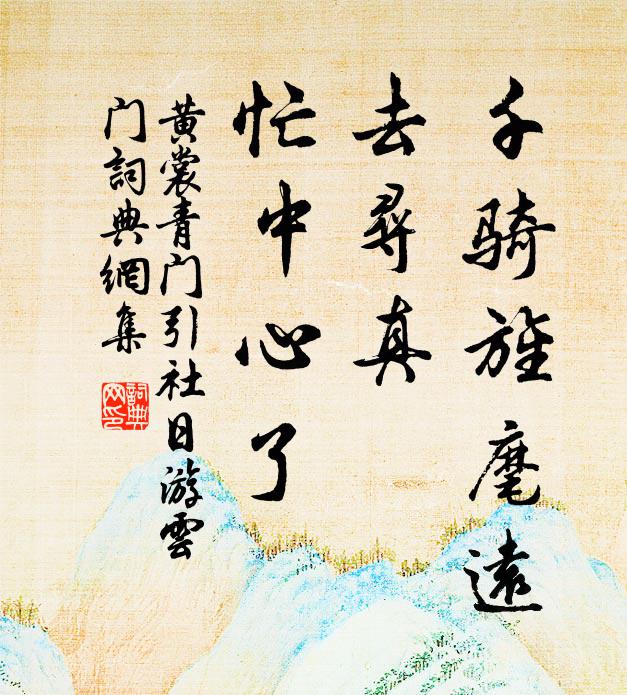 千骑旌麾远
去尋真
忙中心了
黄裳青门引社日游雲
门詞典網集
詞典网印